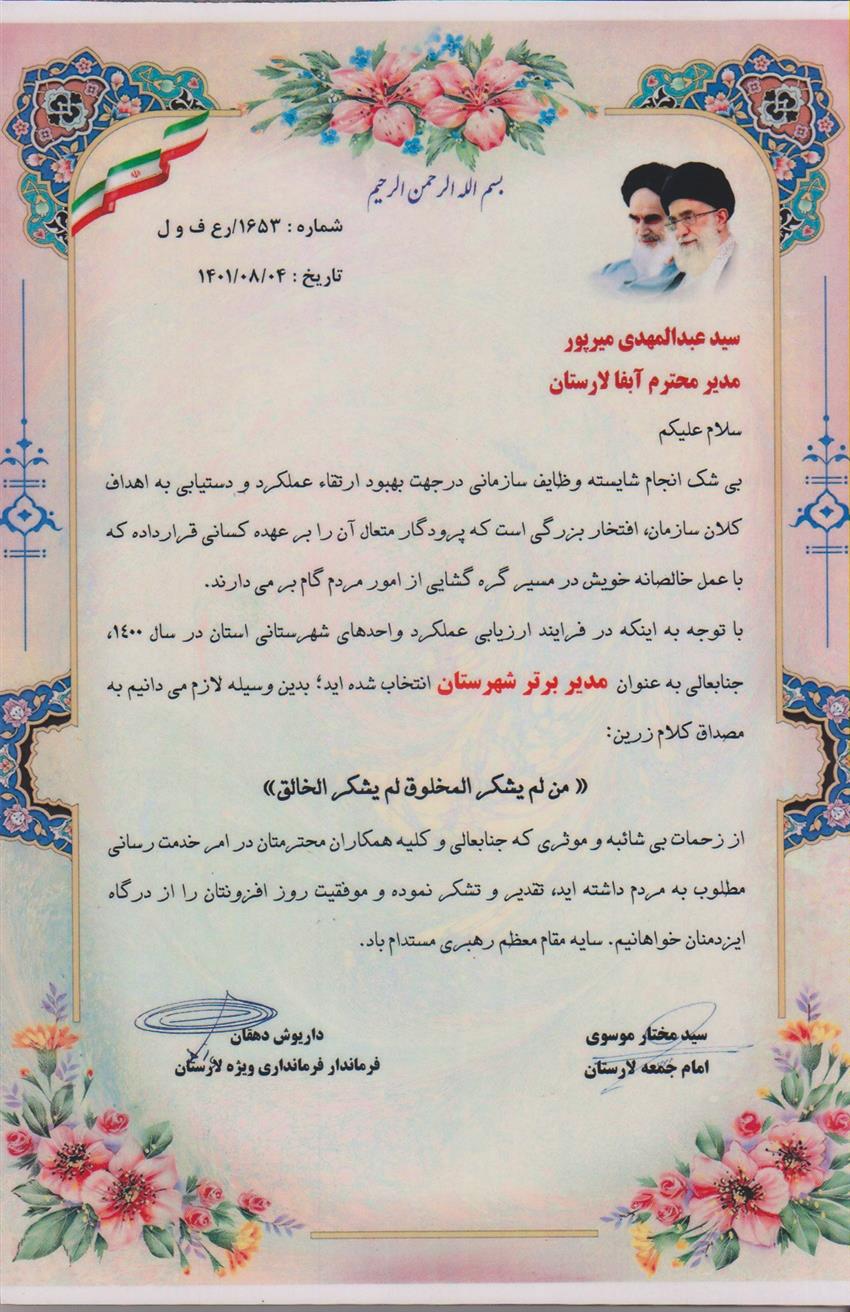 بسم الله الرحمن الرحیم
شماره : ۱۶۵۳/رع ف و ل
تاریخ : ۱۴۰۱/۰۸/۰۴
سید عبدالمهدی میرپور
مدیر محترم آبفا لارستان
سلام علیکم
بی شک انجام شایسته وظایف سازمانی درجهت بهبود ارتقاء عملکرد و دستیابی به اهداف
کلان سازمان، افتخار بزرگی است که پرودگار متعال آن را بر عهده کسانی قرارداده که
با عمل خالصانه خویش در مسیر گره گشایی از امور مردم گام بر می دارند.
با توجه به اینکه در فرایند ارزیابی عملکرد واحدهای شهرستانی استان در سال ۱۴۰۰،
جنابعالی به عنوان مدیر برتر شهرستان انتخاب شده اید؛ بدین وسیله لازم می دانیم به
مصداق کلام زرین:
« من لم یشکر المخلوق لم یشکر الخالق»
از زحمات بی شائبه و موثری که جنابعالی و کلیه همکاران محترمتان در امر خدمت رسانی
مطلوب به مردم داشته اید، تقدیر و تشکر نموده و موفقیت روز افزونتان را از درگاه
ایزدمنان خواهانیم. سایه مقام معظم رهبری مستدام باد.
سید مختار موسوی
امام جمعه لارستان
داریوش دهقان
فرماندار فرمانداری ویژه لارستان